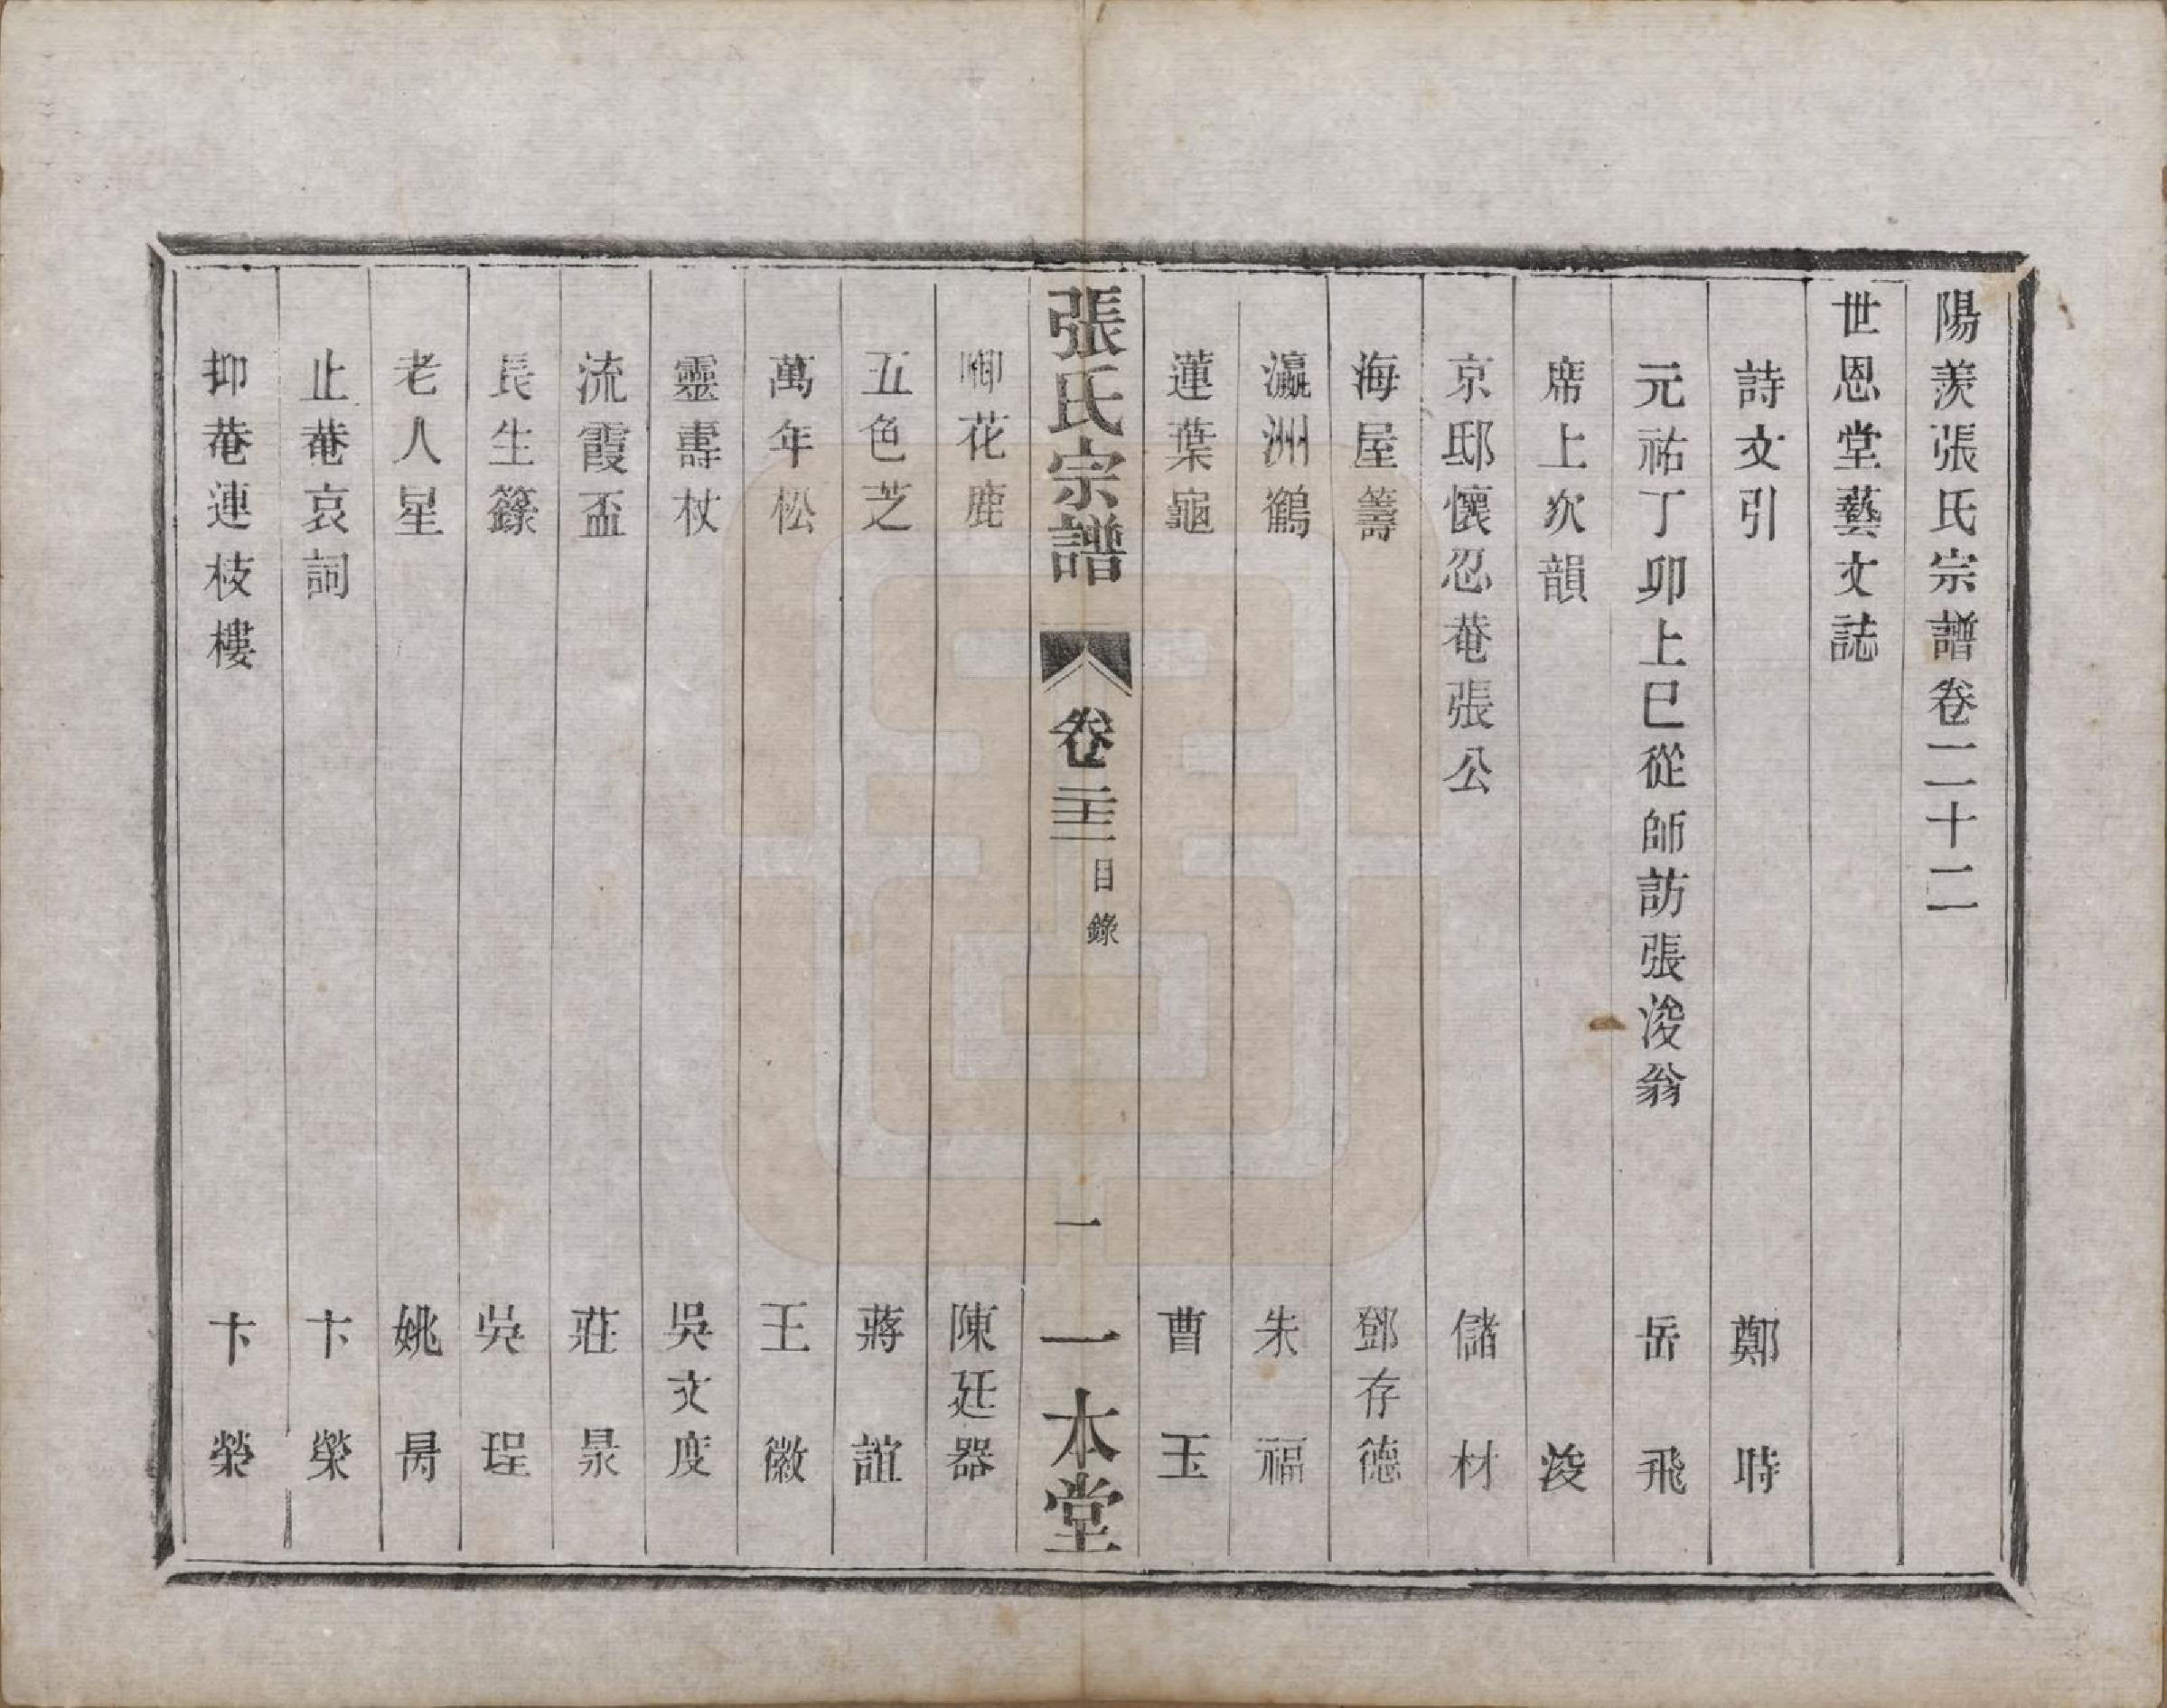 陽羨張氏宗譜卷二十二
世恩堂藝文誌
詩文引 鄭時
元祐丁卯上巳從師訪張浚翁 岳飛
席上次韻 浚
京邸懷忍菴張公 儲材
海屋籌 鄧存德
瀛洲鶴 朱福
蓮葉龜 曹玉
張氏宗譜 卷二十二 目錄 一 一本堂
啣花鹿 陳廷器
五色芝 蔣誼
萬年松 王徽
靈壽杖 吳文度
流霞盃 莊
長生籙 吳珵
老人星 姚
止菴哀詞 卞榮
抑菴連枝樓 卞榮